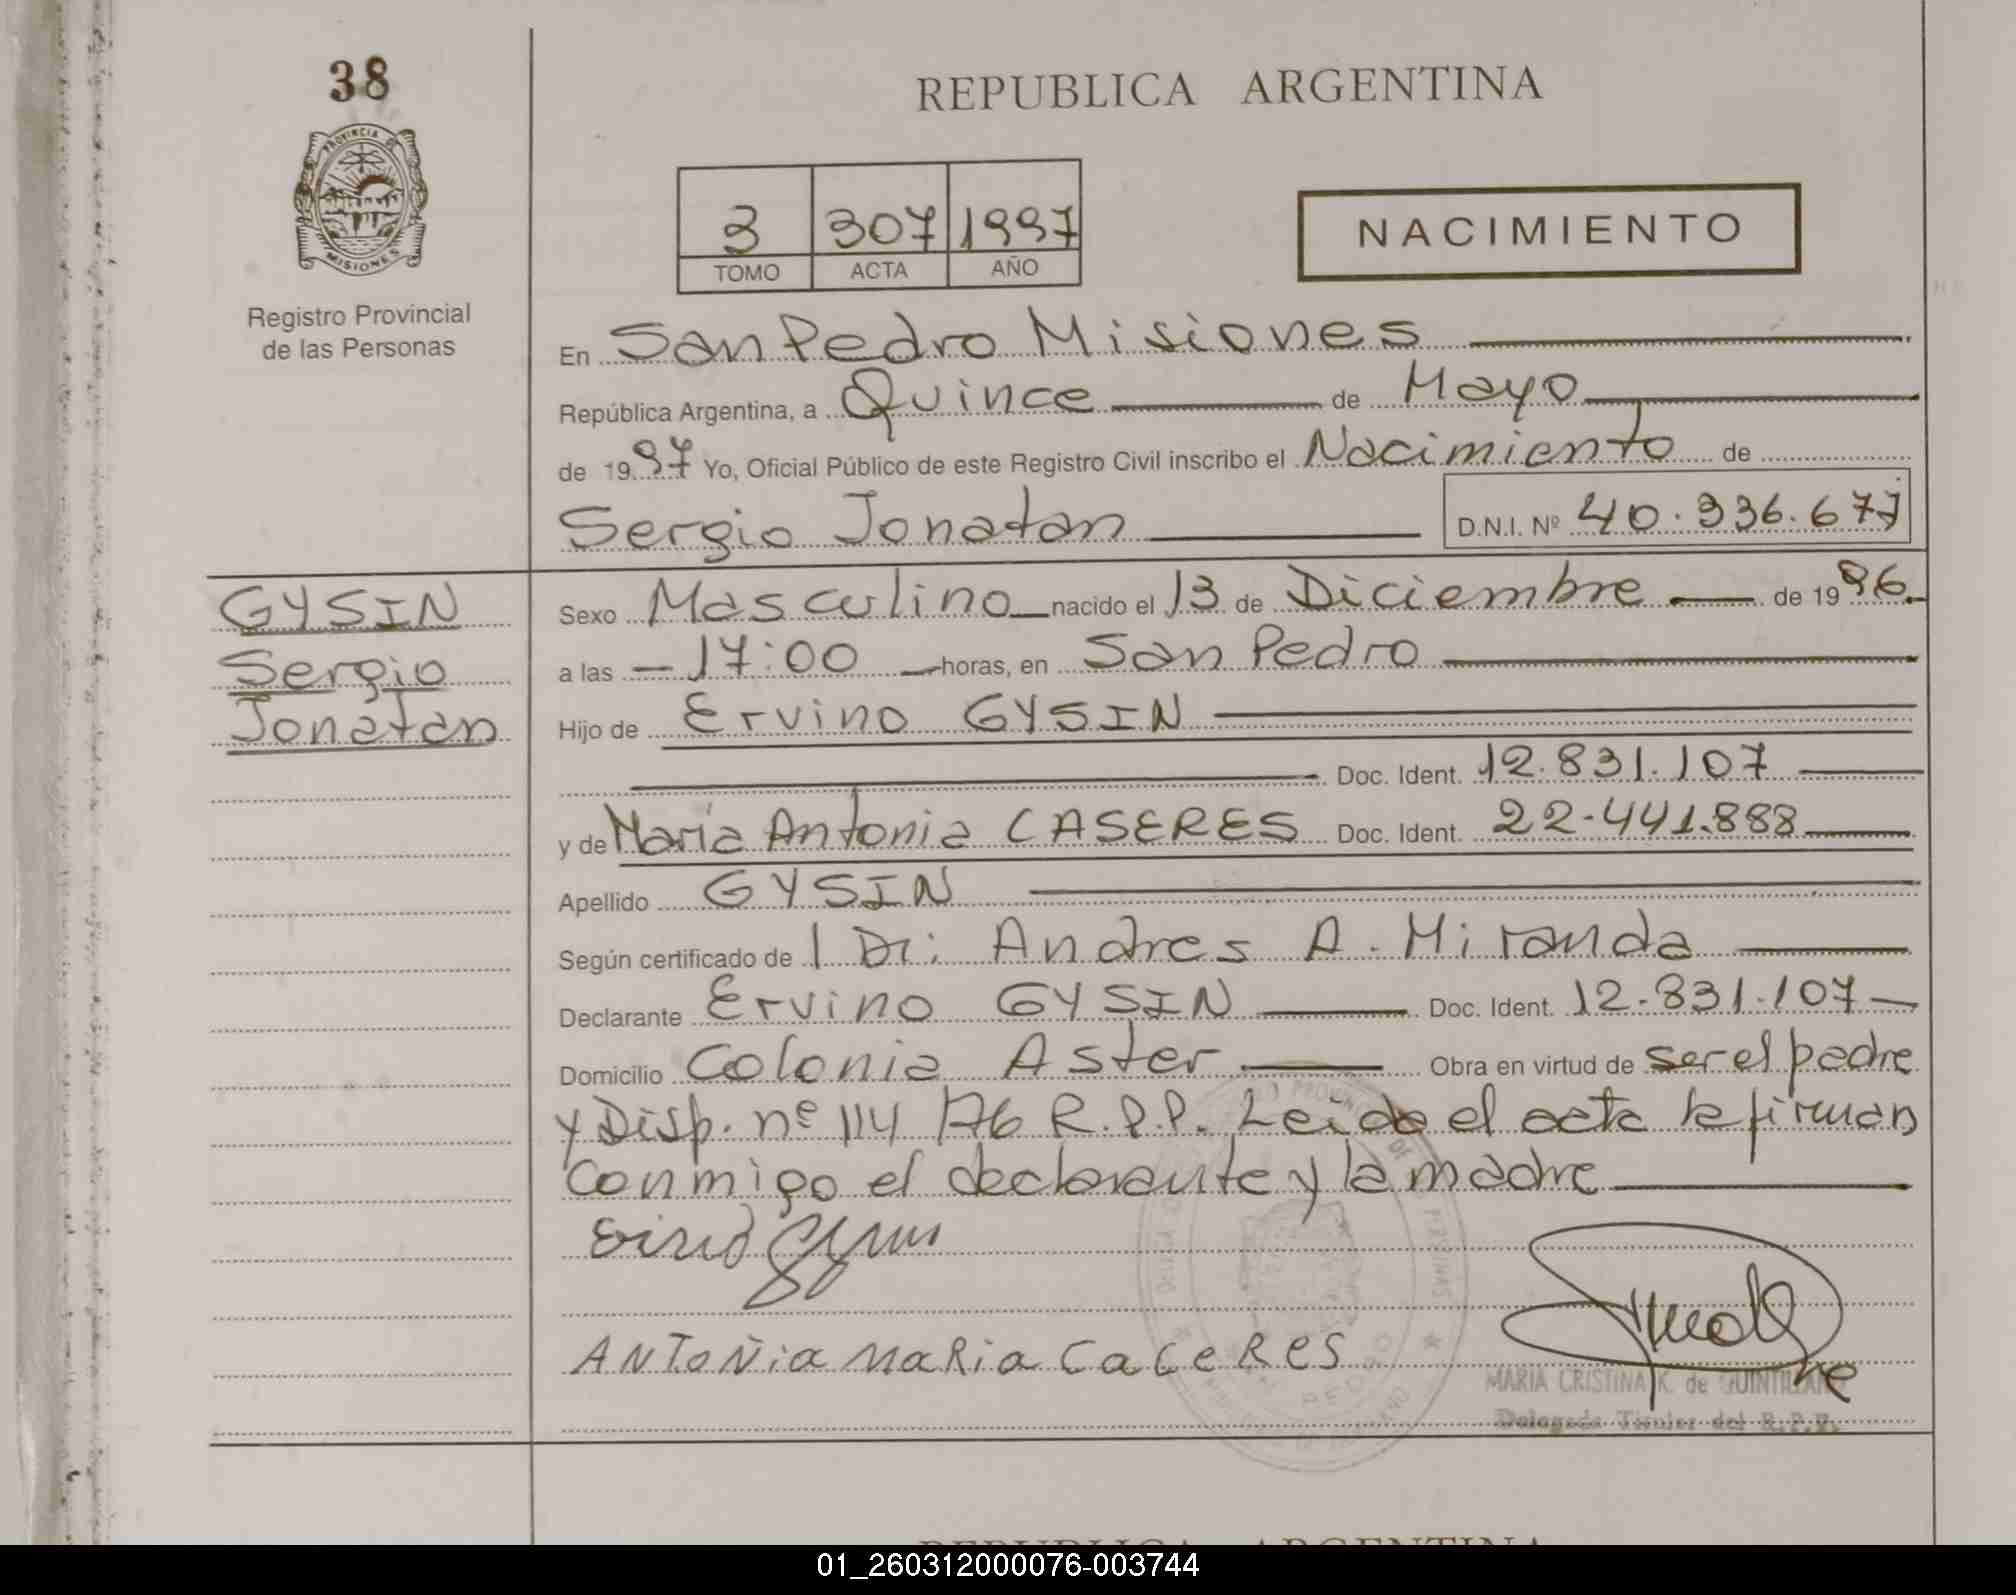 38
REPUBLICA ARGENTINA
PROVINCIA DE
MISIONES
Registro Provincial
de las Personas
3 307 1997
TOMO ACTA AÑO
NACIMIENTO
En San Pedro Misiones
República Argentina, a Quince de Mayo
de 1997 Yo, Oficial Público de este Registro Civil inscribo el Nacimiento de
Sergio Jonatan D.N.I. Nº 40.336.677
GYSIN
Sergio
Jonatan
Sexo Masculino nacido el 13 de Diciembre de 1996
a las 17:00 horas, en San Pedro
Hijo de Ervino GYSIN
Doc. Ident. 12.831.107
y de Maria Antonia CASERES Doc. Ident. 22.441.888
Apellido GYSIN
Según certificado de Dr. Andres A. Miranda
Declarante Ervino GYSIN Doc. Ident. 12.831.107
Domicilio Colonia Aster Obra en virtud de ser el padre
y Disp. nº 114/76 R.P.P. Leida el acta la firman
conmigo el declarante y la madre
ANTOÑia MaRia CaCeRes
MARIA CRISTINA K. de QUINTILLAN
Delegada Titular del R.P.P.
REPUBLICA ARGENTINA
01_260312000076-003744